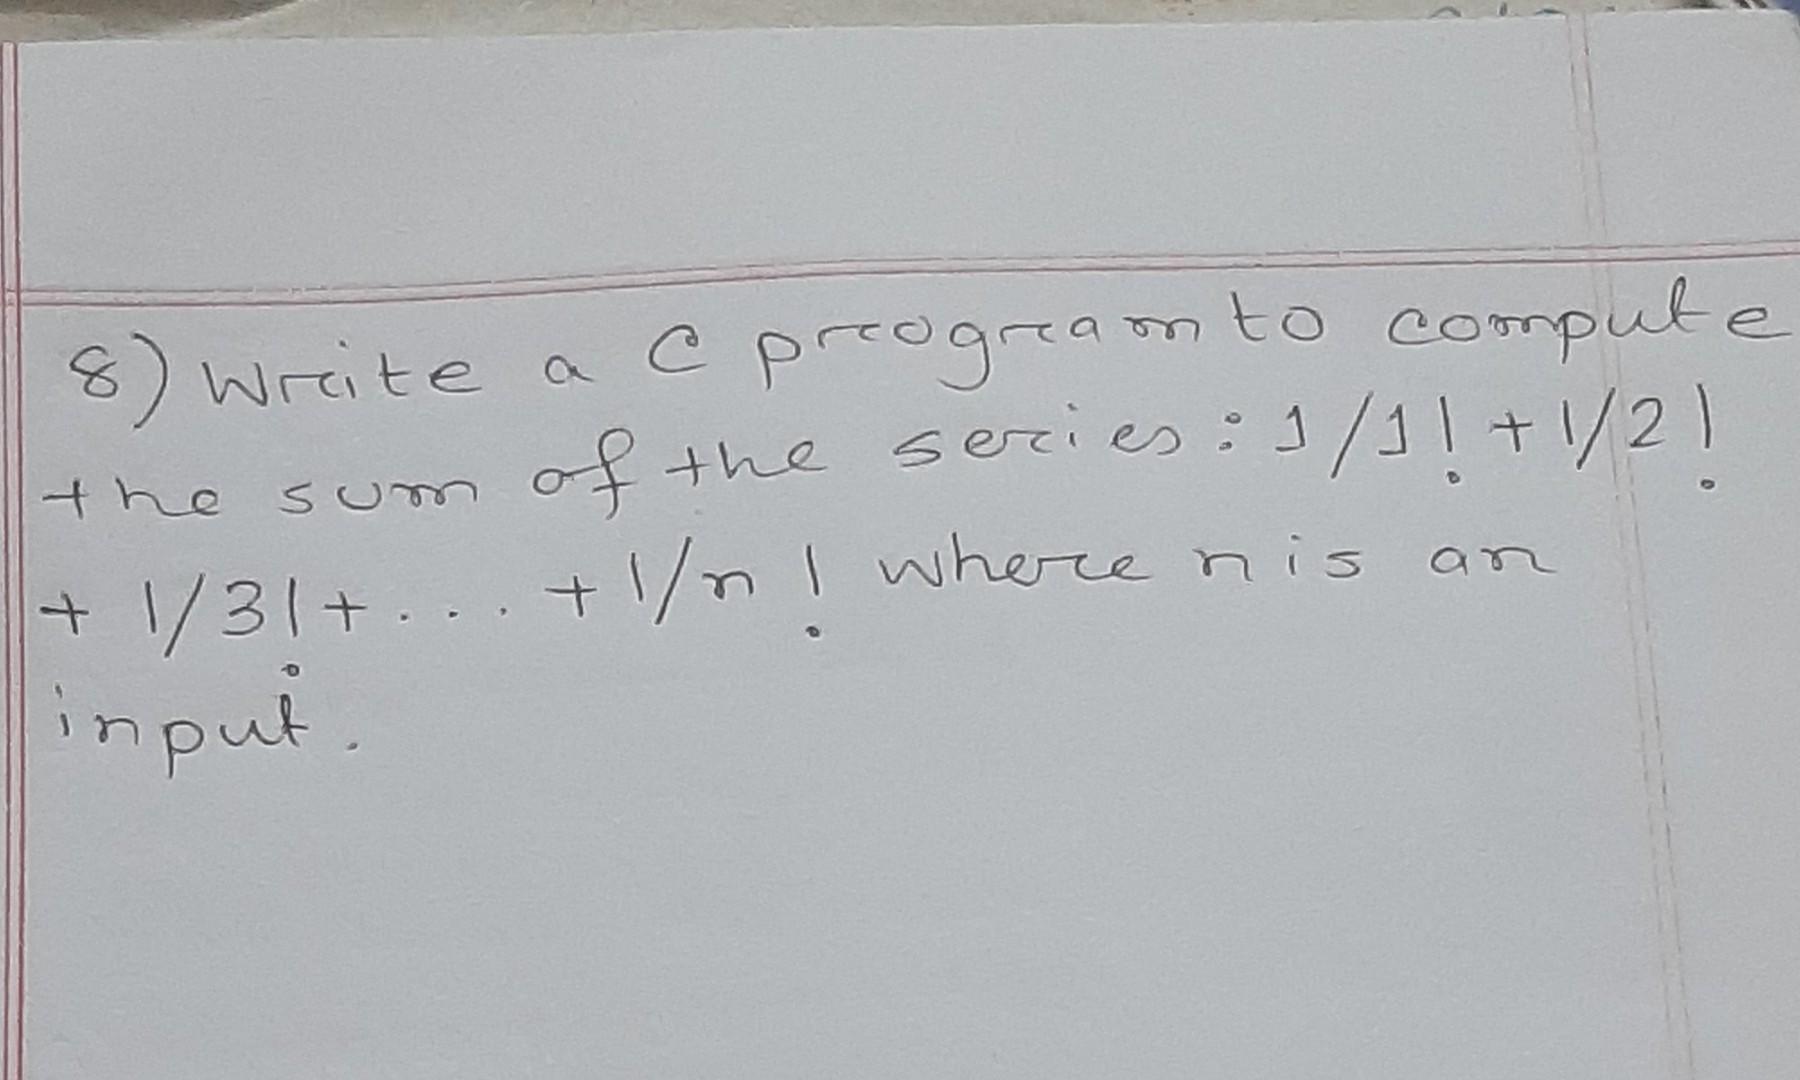 8) Write a C program to compute
the sum of the series: 1/1! + 1/2!
+ 1/3! + . . . . + 1/n! where n is an
input.